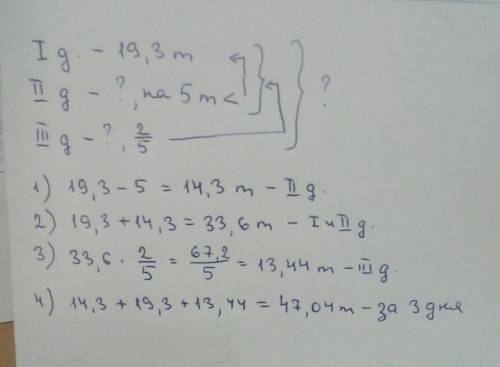 I д. – 19,3 т
II д – ?, на 5 т <
III д – ?, 2/5
?
1) 19,3 – 5 = 14,3 т – II д.
2) 19,3 + 14,3 = 33,6 т – I и II д.
3) 33,6 · 2/5 = 67,2/5 = 13,44 т – III д.
4) 14,3 + 19,3 + 13,44 = 47,04 т – за 3 дня